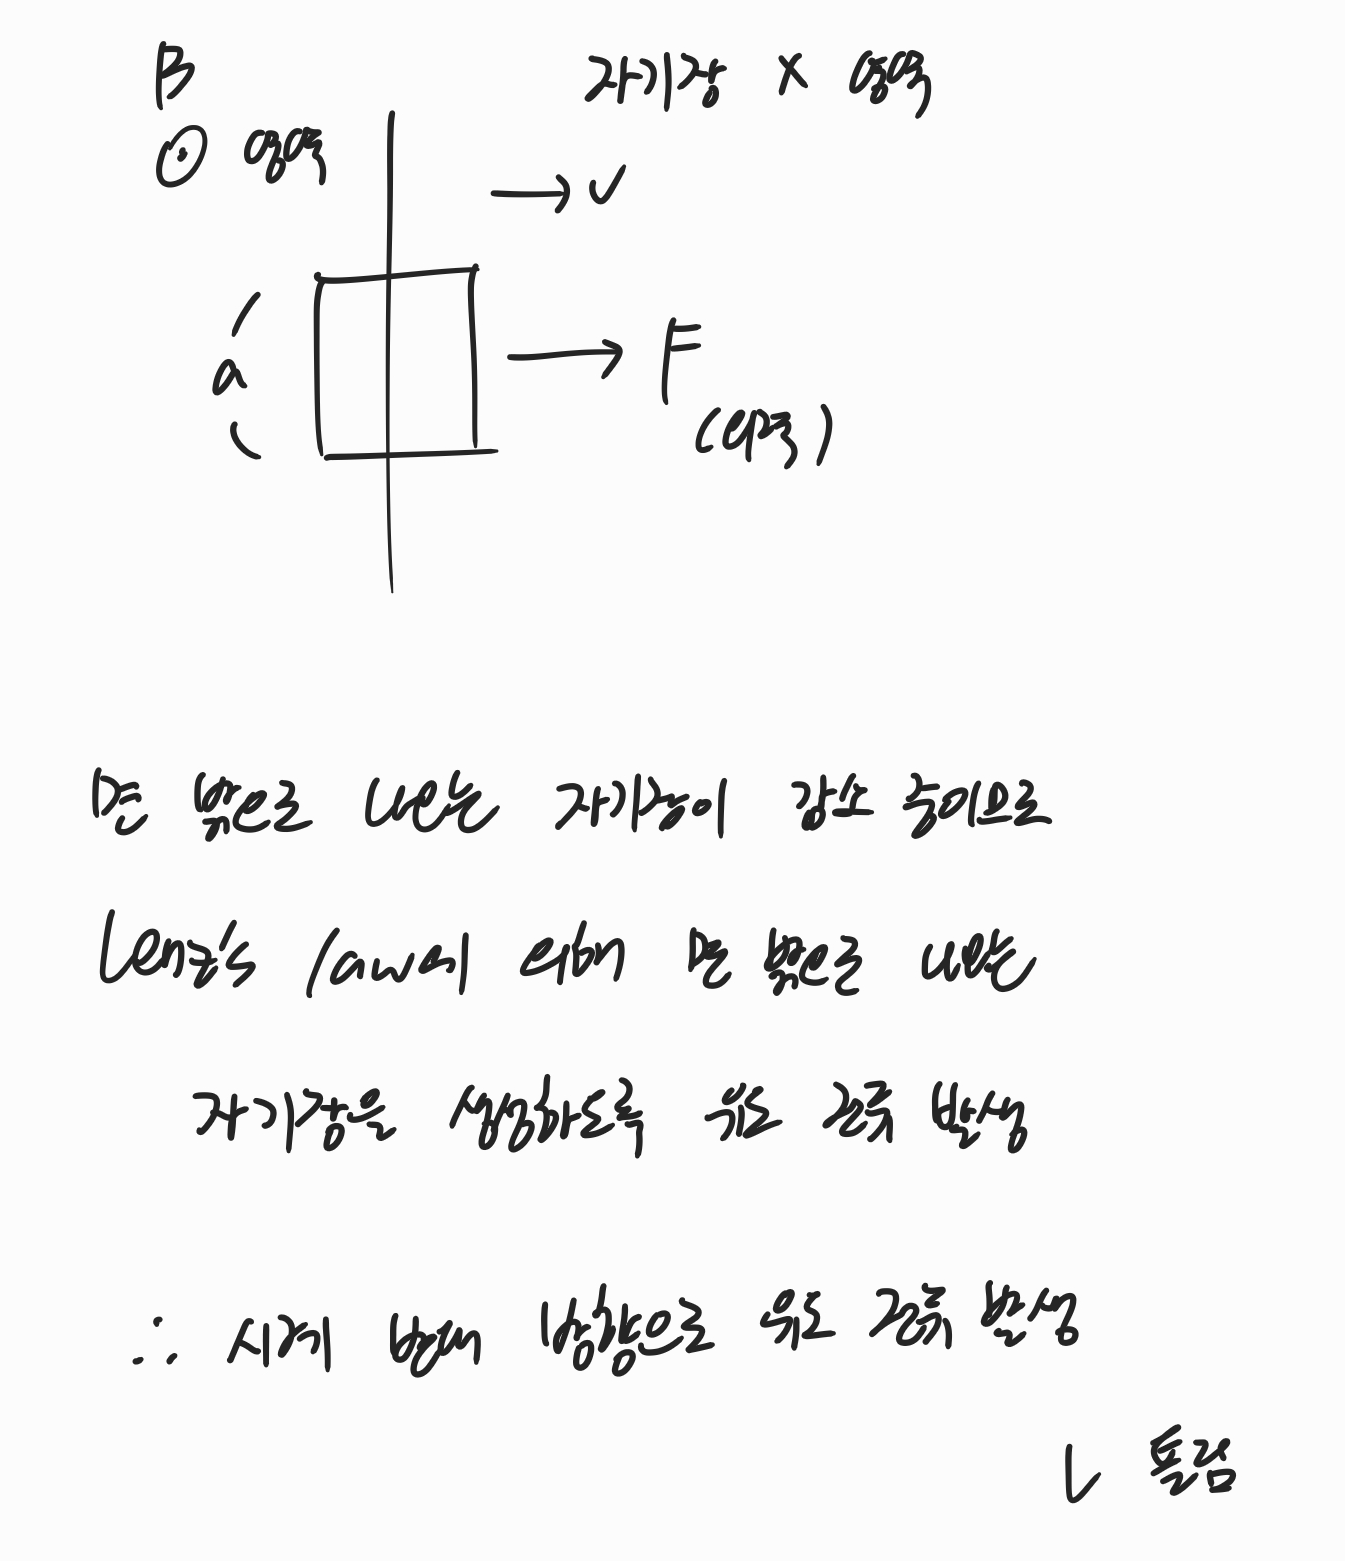 B
자기장 X 영역
⊙ 영역
→ v
a
→ F
(외력)
면 밖으로 나오는 자기장이 감소 중이므로
Lenz's law에 의해 면 밖으로 나오는
자기장을 생성하도록 유도 전류 발생
∴ 시계 반대 방향으로 유도 전류 발생
ㄴ 틀림